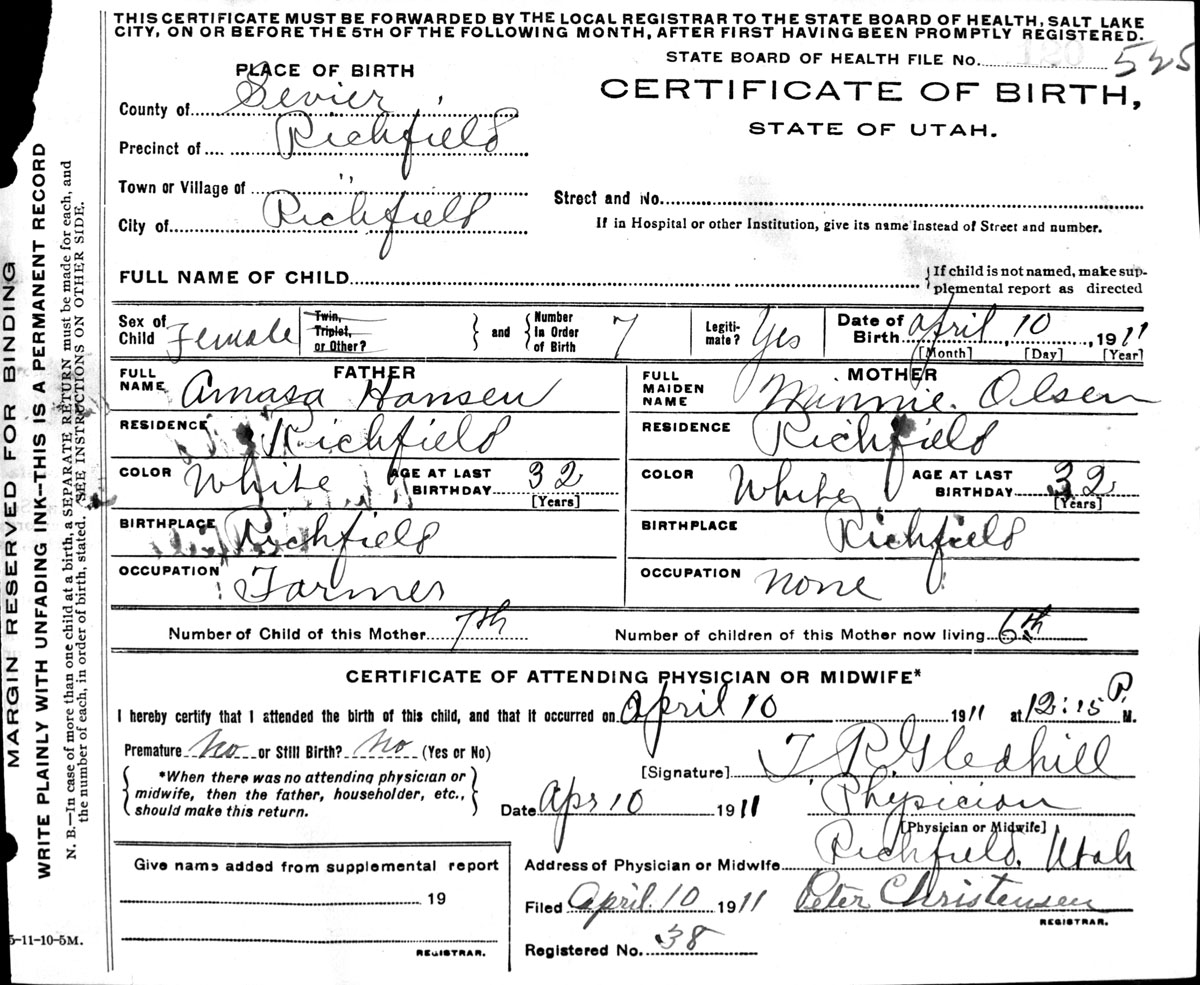 THIS CERTIFICATE MUST BE FORWARDED BY THE LOCAL REGISTRAR TO THE STATE BOARD OF HEALTH, SALT LAKE
CITY, ON OR BEFORE THE 5TH OF THE FOLLOWING MONTH, AFTER FIRST HAVING BEEN PROMPTLY REGISTERED.
STATE BOARD OF HEALTH FILE No. 120 525
PLACE OF BIRTH
CERTIFICATE OF BIRTH,
STATE OF UTAH.
County of Sevier
Precinct of Richfield
Town or Village of "
Street and No.
City of Richfield
If in Hospital or other Institution, give its name instead of Street and number.
FULL NAME OF CHILD
If child is not named, make sup-
plemental report as directed
Sex of Child Female
Twin,
Triplet,
or Other?
and
Number
in Order
of Birth 7
Legiti-
mate? Yes
Date of
Birth April 10, 1911
[Month] [Day] [Year]
FATHER
FULL
NAME Amasa Hansen
RESIDENCE Richfield
COLOR White AGE AT LAST
BIRTHDAY 32
[Years]
BIRTHPLACE Richfield
OCCUPATION Farmer
MOTHER
FULL
MAIDEN
NAME Minnie Olsen
RESIDENCE Richfield
COLOR White AGE AT LAST
BIRTHDAY 32
[Years]
BIRTHPLACE Richfield
OCCUPATION None
Number of Child of this Mother 7th Number of children of this Mother now living 6th
CERTIFICATE OF ATTENDING PHYSICIAN OR MIDWIFE*
I hereby certify that I attended the birth of this child, and that it occurred on April 10 1911 at 12:15 P. M.
Premature No or Still Birth? No (Yes or No)
*When there was no attending physician or
midwife, then the father, householder, etc.,
should make this return.
[Signature] T. R. Gledhill
Date Apr 10 1911 Physician
[Physician or Midwife]
Address of Physician or Midwife Richfield, Utah
Give name added from supplemental report
19
REGISTRAR.
Filed April 10 1911 Peter Christensen
REGISTRAR.
Registered No. 38
5-11-10-5M.
MARGIN RESERVED FOR BINDING
WRITE PLAINLY WITH UNFADING INK—THIS IS A PERMANENT RECORD
N. B.—In case of more than one child at a birth, a SEPARATE RETURN must be made for each, and
the number of each, in order of birth, stated. SEE INSTRUCTIONS ON OTHER SIDE.